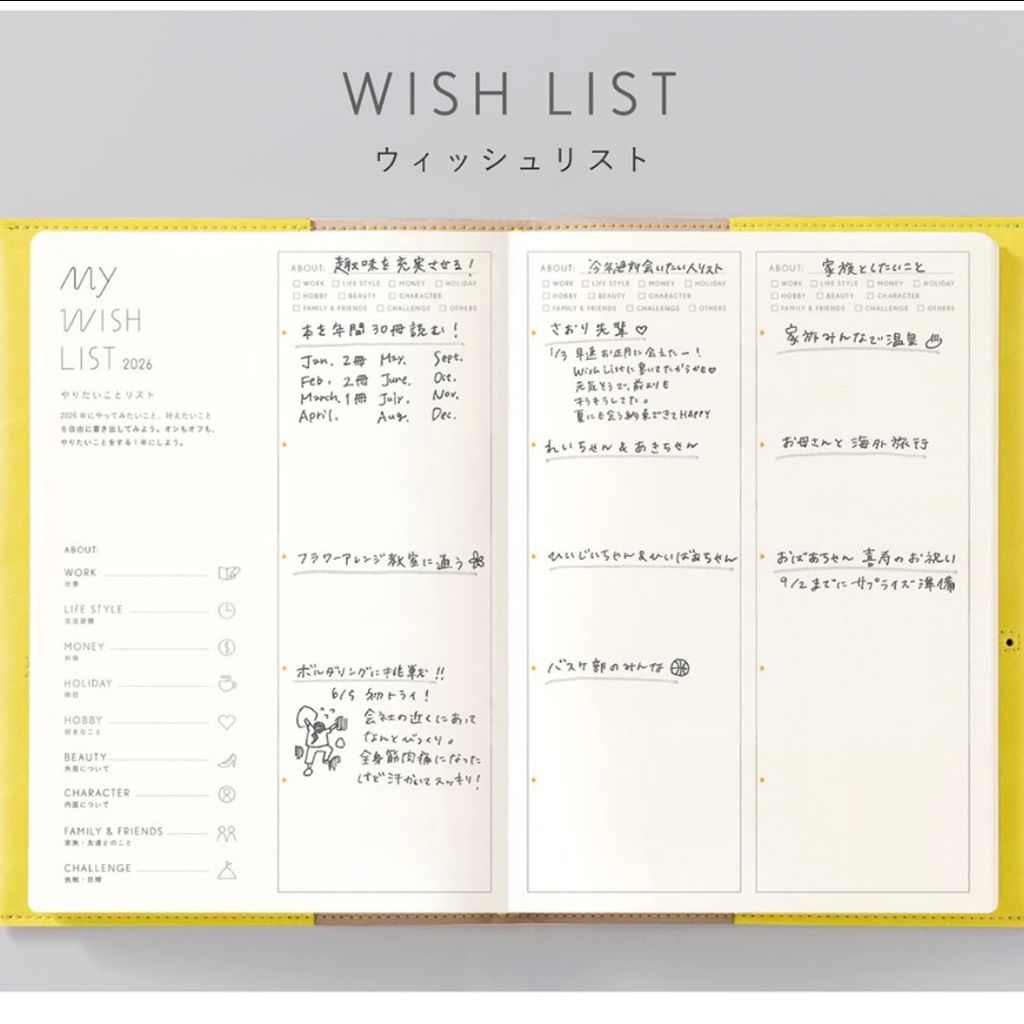 WISH LIST
ウィッシュリスト
MY
WISH
LIST 2026
やりたいことリスト
2026年にやってみたいこと、叶えたいこと
を自由に書き出してみよう。オンもオフも、
やりたいことをする1年にしよう。
ABOUT:
WORK
仕事
LIFE STYLE
生活習慣
MONEY
お金
HOLIDAY
休日
HOBBY
好きなこと
BEAUTY
外見について
CHARACTER
内面について
FAMILY & FRIENDS
家族・友達とのこと
CHALLENGE
挑戦・目標
ABOUT: 趣味を充実させる!
WORK LIFE STYLE MONEY HOLIDAY
HOBBY BEAUTY CHARACTER
FAMILY & FRIENDS CHALLENGE OTHERS
本を年間30冊読む!
Jan. 2冊 May. Sept.
Feb. 2冊 June. Oct.
March. 1冊 July. Nov.
April. Aug. Dec.
フラワーアレンジ教室に通う
ボルダリングに挑戦!!
6/5 初トライ!
会社の近くにあって
なんとびっくり。
全身筋肉痛になった
けど汗かいてスッキリ!
ABOUT: 今年絶対会いたい人リスト
WORK LIFE STYLE MONEY HOLIDAY
HOBBY BEAUTY CHARACTER
FAMILY & FRIENDS CHALLENGE OTHERS
さおり先輩♡
1/3 早速お正月に会えたー!
Wish Listに書いてたからかも♥
元気そうで、前よりも
キラキラしてた。
夏にも会う約束できてHAPPY
れいちゃん&あきちゃん
ひいじいちゃん&ひいばあちゃん
バスケ部のみんな
ABOUT: 家族としたいこと
WORK LIFE STYLE MONEY HOLIDAY
HOBBY BEAUTY CHARACTER
FAMILY & FRIENDS CHALLENGE OTHERS
家族みんなで温泉♨
お母さんと海外旅行
おばあちゃん喜寿のお祝い
9/2までにサプライズ準備